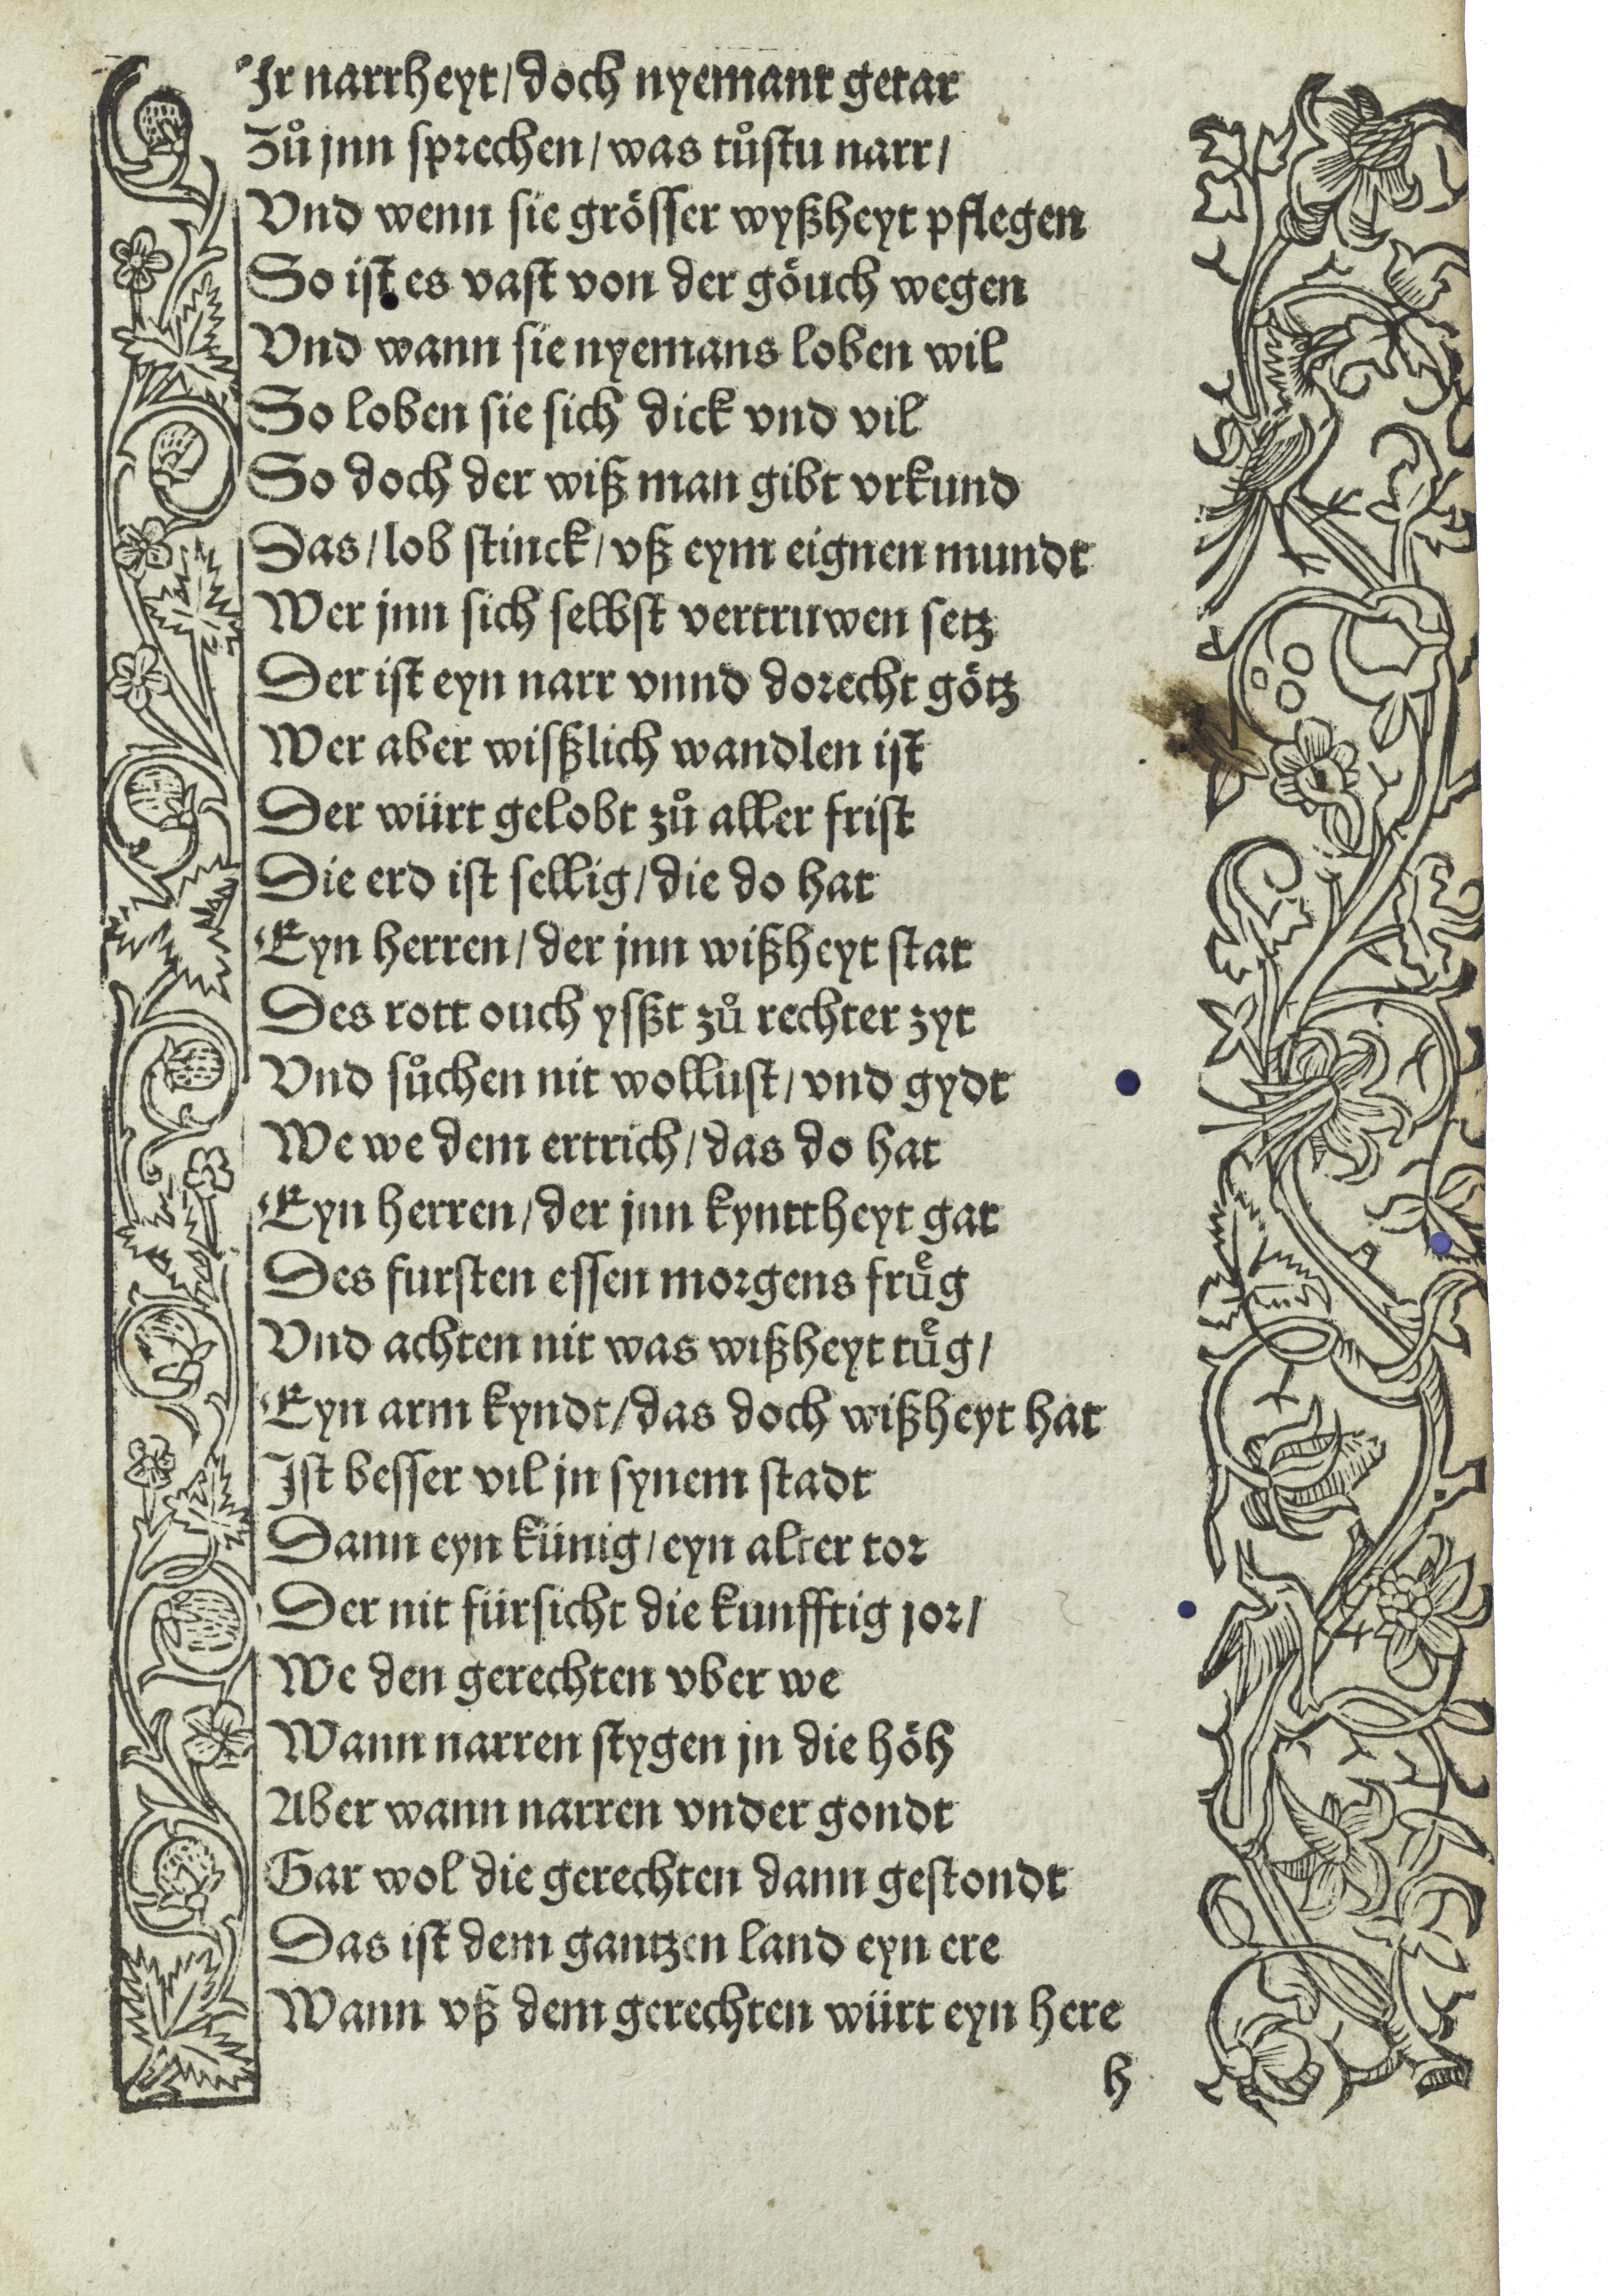 Ir narrheyt/doch nyemant getar
Zuͦ jnn sprechen/was tuͦstu narr/
Vnd wenn sie grösser wyßheyt pflegen
So ist es vast von der göuch wegen
Vnd wann sie nyemans loben wil
So loben sie sich dick vnd vil
So doch der wiß man gibt vrkund
Das/lob stinck/vß eym eignen mundt
Wer jnn sich selbst vertruwen setz
Der ist eyn narr vnnd dorecht götz
Wer aber wisßlich wandlen ist
Der würt gelobt zuͦ aller frist
Die erd ist sellig/die do hat
Eyn herren/der jnn wißheyt stat
Des rott ouch ysßt zuͦ rechter zyt
Vnd suͦchen nit wollust/vnd gydt
We we dem ertrich/das do hat
Eyn herren/der jnn kynttheyt gat
Des fursten essen morgens fruͤg
Vnd achten nit was wißheyt tuͤg/
Eyn arm kyndt/das doch wißheyt hat
Ist besser vil jn synem stadt
Dann eyn künig/eyn alter tor
Der nit fürsicht die kunfftig jor/
We den gerechten vber we
Wann narren stygen jn die höh
Aber wann narren vnder gondt
Gar wol die gerechten dann gestondt
Das ist dem gantzen land eyn ere
Wann vß dem gerechten würt eyn here
h